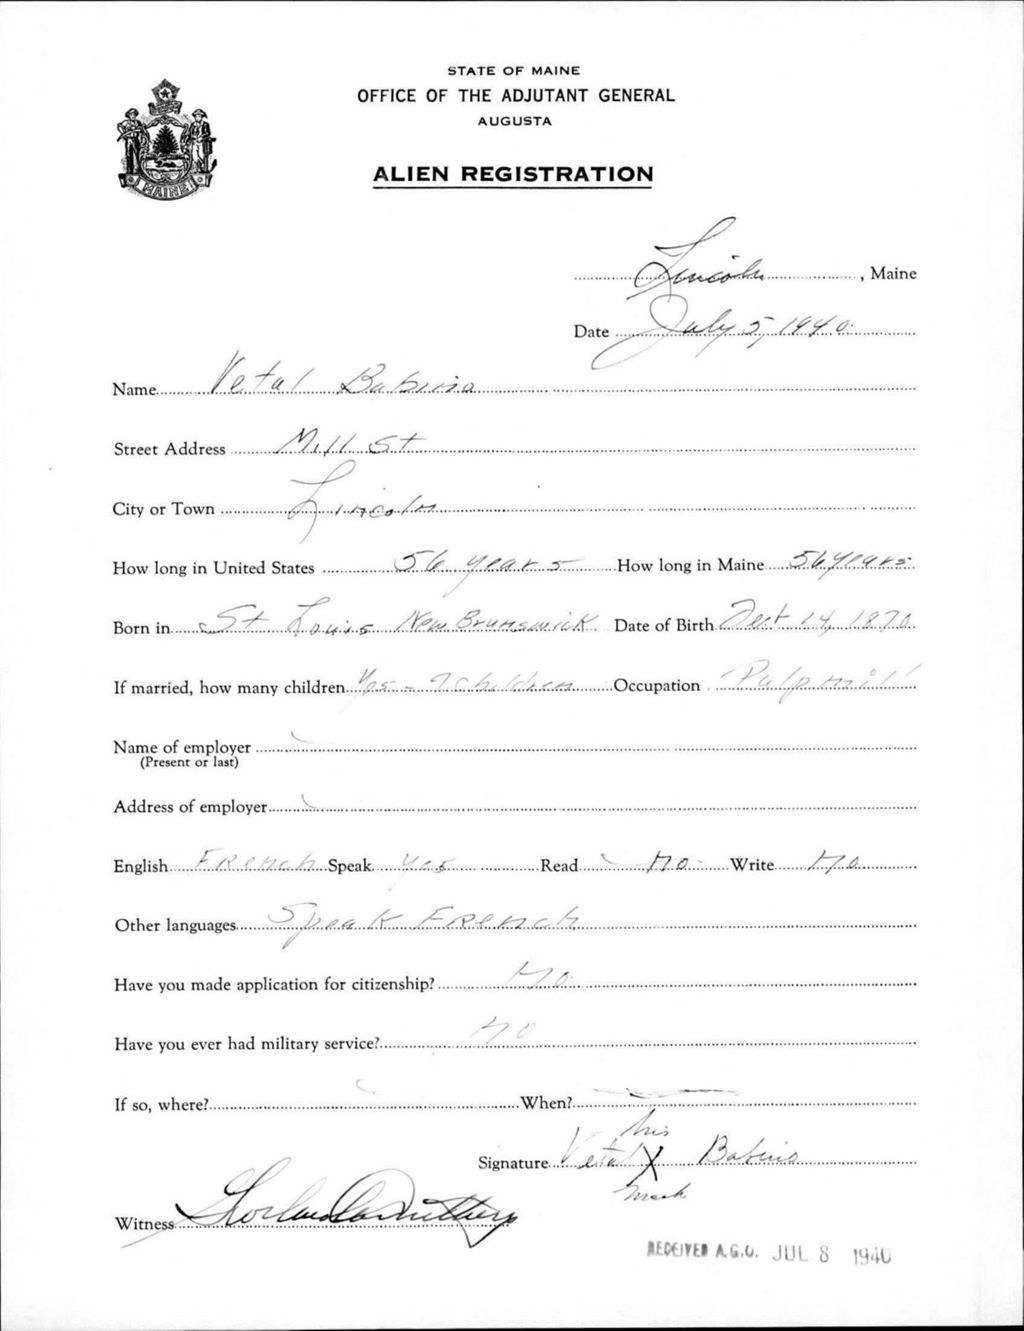 STATE OF MAINE
OFFICE OF THE ADJUTANT GENERAL
AUGUSTA
ALIEN REGISTRATION
MAINE
Lincoln, Maine
Date July 5, 1940.
Name Vetal Babino
Street Address Mill St
City or Town Lincoln
How long in United States 56 years How long in Maine 56 years
Born in St Louis New Brunswick Date of Birth 14, 1870
If married, how many children Yes - 7 children Occupation Pulp mill
Name of employer
(Present or last)
Address of employer
English French Speak yes Read no Write no
Other languages Speak French
Have you made application for citizenship? no
Have you ever had military service? no
If so, where? When?
his
Signature Vetal X Babino
mark
Witness
RECEIVED A.G.O. JUL 8 1940